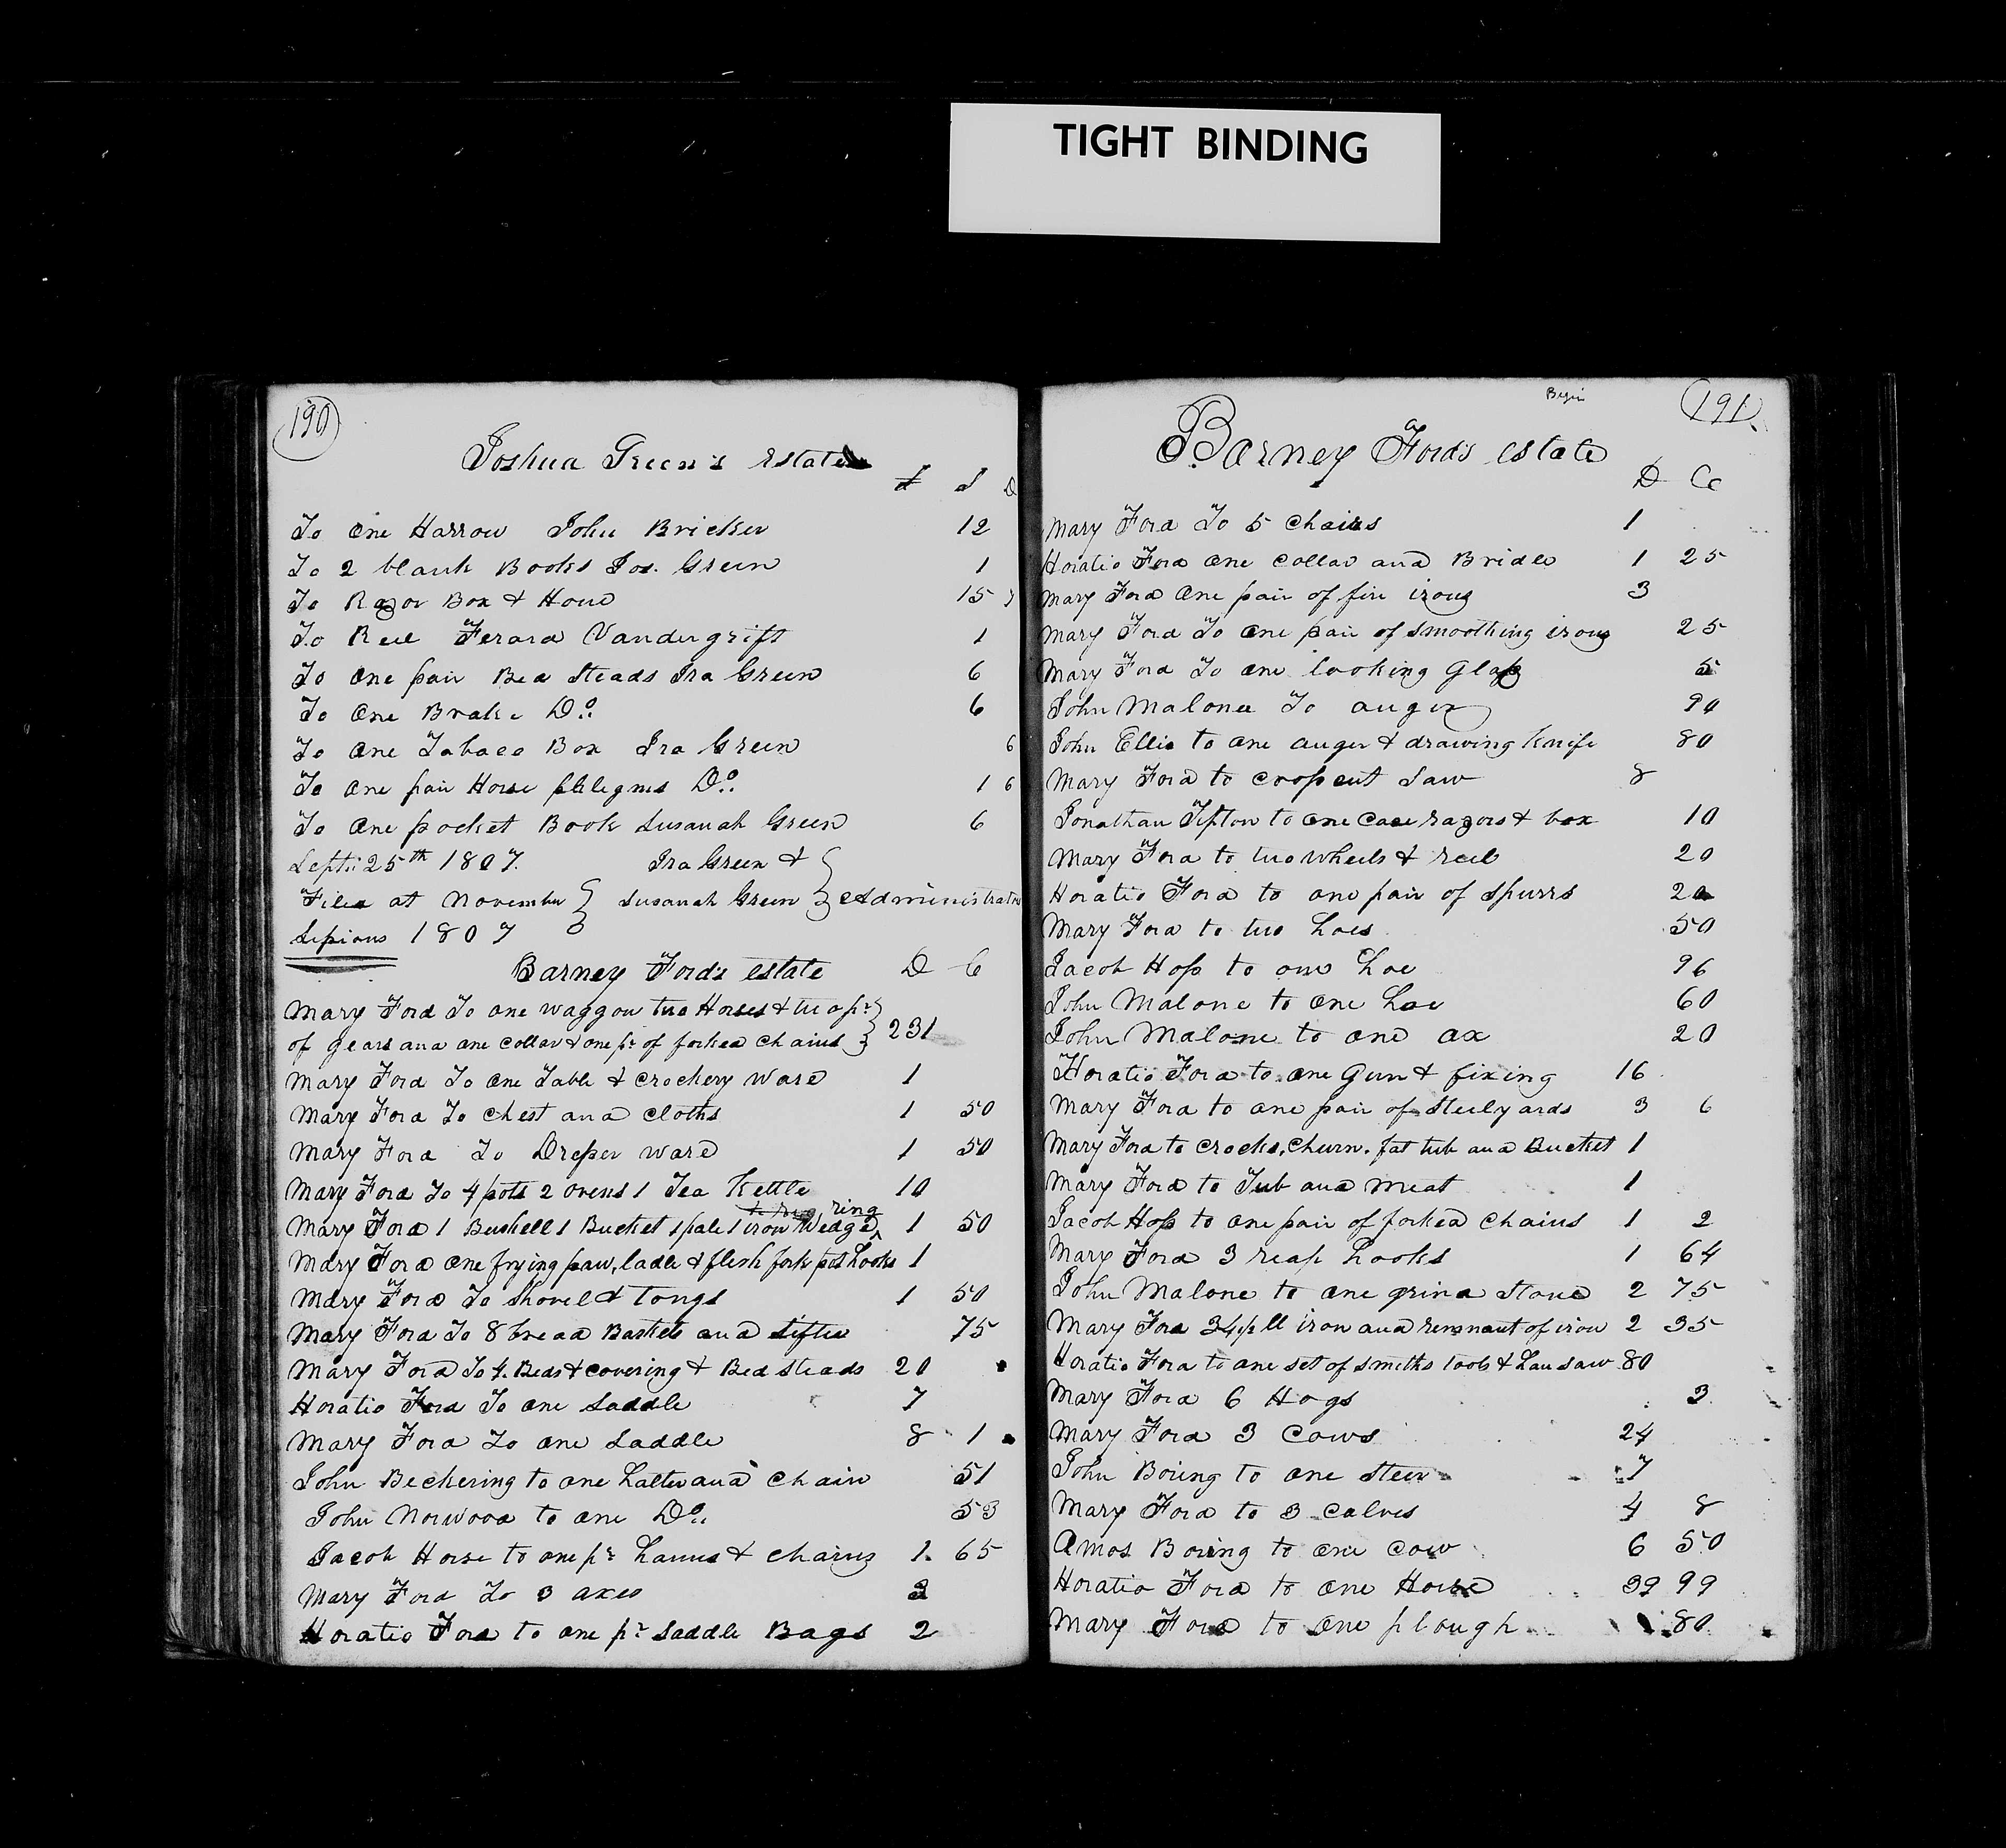 TIGHT BINDING
190
Joshua Green's Estate
£ S D
To One Harrow John Bricker 12
To 2 blank Books Jos. Green 1
To Razor Box & Hone 15
To Reel Ferard Vandergrift 1
To One pair Bed Steads Ira Green 6
To One Brake Do. 6
To One Tobaco Box Ira Green 6
To One pair Horse phlegms Do. 1 6
To One pocket Book Susanah Green 6
Septr. 25th 1807. Ira Green &
Filed at November Susanah Green Administrators
Sessions 1807
Barney Ford's estate D C
Mary Ford To one waggon two Horses & two pr
of Gears and one collar & one pr of forked chains 231
Mary Ford To One Table & Crockery Ware 1
Mary Ford To Chest and cloths 1 50
Mary Ford To Dresser ware 1 50
Mary Ford To 4 pots 2 ovens 1 Tea Kettle 10
ring
Mary Ford 1 Bushell 1 Bucket 1 pale 1 iron Wedge 1 50
Mary Ford one frying pan, ladle & flesh fork pot hooks 1
Mary Ford To Shovel & Tongs 1 50
Mary Ford To 8 bread Baskets and sifter 75
Mary Ford To 4 Beds & covering & Bed Steads 20
Horatio Ford To one Saddle 7
Mary Ford To one Saddle 8 1
John Beckering to one halter and Chain 51
John Norwood to one Do. 53
Jacob Horse to one pr hams & chains 1. 65
Mary Ford To 3 axes 3
Horatio Ford to one pr Saddle Bags 2
Begin
191
Barney Ford's estate
D Cc
Mary Ford To 5 Chairs 1
Horatio Ford One Collar and Bridle 1 25
Mary Ford One pair of fire irons 3
Mary Ford To One pair of Smoothing irons 25
Mary Ford To one looking Glass 5
John Malone To auger 90
John Ellis to one auger & drawing Knife 80
Mary Ford to crosscut Saw 8
Jonathan Tipton to one Case razors & box 10
Mary Ford to two wheels & reel 20
Horatio Ford to one pair of Spurrs 20
Mary Ford to two hoes 50
Jacob Hoss to one hoe 96
John Malone to one hoe 60
John Malone to one ax 20
Horatio Ford to one Gun & fixing 16
Mary Ford to one pair of Steelyards 3 6
Mary Ford to Crocks, Churn. fat tub and Bucket 1
Mary Ford to Tub and Meat 1
Jacob Hoss to one pair of forked Chains 1 2
Mary Ford 3 reap hooks 1 64
John Malone to one grind Stone 2 75
Mary Ford 34½ ll iron and remnant of iron 2 35
Horatio Ford to one set of smiths tools & han saw 80
Mary Ford 6 Hogs 3
Mary Ford 3 Cows 24
John Boring to one Steer 7
Mary Ford to 3 Calves 4 8
Amos Boring to one Cow 6 50
Horatio Ford to one Horse 39 99
Mary Ford to One plough 80